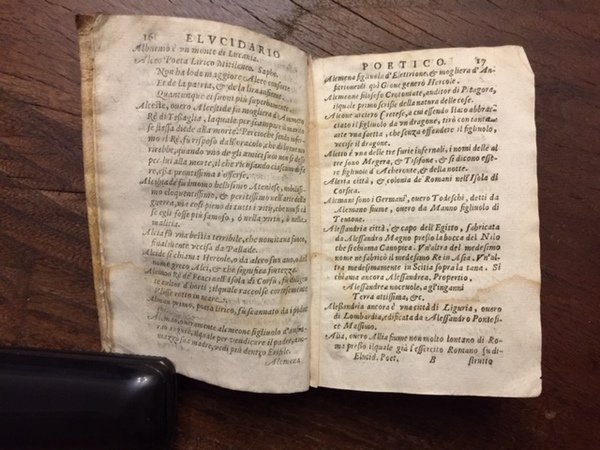 16 ELVCIDARIO
Alburnio è vn monte di Lucania.
Alceo Poeta Lirico Mitileneo. Sapho.
Non ha lode maggiore Alceo consorte
Et de la patria, & de la lira insieme,
Quantunque ei suoni più superbamente.
Alceste, ouero Alcestide fu mogliera d'Ammeto
Rè di Tessaglia, la quale per scampare il marito
se stessa diede alla morte. Percioche sendo infermo
il Rè, fu risposo dall'oracolo, che ei di
rebbe, quando vno de gli amici suoi
lui alla morte, il che ricusando ciascun di fa-
re, essa prontissima s'offerse.
Alcibiade fu huomo bellissimo Ateniese, nobilissimo
eloquentissimo, & peritissimo nell'arte della
guerra, ma
egli fosse più famoso, ò nella virtù, ò nella
malitia.
Alcida fù vna bestia terribile, che vomitaua fuoco,
finalmente vccisa da Pallade.
Alcide si chiama Hercole, o da alceo suo auo, o dal
nome greco Alci, che significa fortezza.
nell'Isola di Corfù, fu
tore d'horti, il quale raccolse cortesemente
rotto in mare.
primo, fu scannato da i
alcmeone figliuolo d'Amfia-
il quale per vendicare il padre, am-
mazzò sua madre, vedi più dentro Erifile.
Alcmena
POETICO. 17
Alcmena figliuola d'Elettrione, & mogliera d'An-
fitrione di qui Gioue generò Hercole.
Alcmeone filosofo Crotoniate, auditor di Pitagora,
il quale primo scrisse della natura delle cose.
Alcone arciero Cretese, a cui essendo stato abbrac-
ciato il figliuolo da vn dragone, tirò con tanta
arte vna saetta, che senza offendere il figliuolo,
vccise il dragone.
Aletto è vna delle tre furie infernali, i nomi del
le sono Megera, & Tisifone, & si dicono esse-
re figliuoli d'Acheronte, & della notte.
Aleria città, & colonia de Romani nell'Isola di
Corsica.
Alemani sono i Germani, ouero Todeschi, detti da
Alemano fiume, ouero da Manno figliuolo di
Teutone.
Alessandria città, & capo dell'Egitto, fabricata
da Alessandro Magno presso la bocca del Nilo
che si chiama Canopica. Vn'altra del medesimo
nome ne fabricò il medesimo Re in Asia. Vn'al-
tra medesimamente in Scitia sopra la tana. Si
chiama ancora Alessandrea. Propertio.
Alessandrea noceuole, agl'inganni
Terra attissima, &c.
Alessandria ancora è vna città di Liguria, ouero
di Lombardia, edificata da Alessandro Pontefi-
ce Massimo.
Alia, ouero Allia fiume non molto lontano di Ro-
ma presso il quale già l'essercito Romano fu di-
Elucid. Poet. B strutto